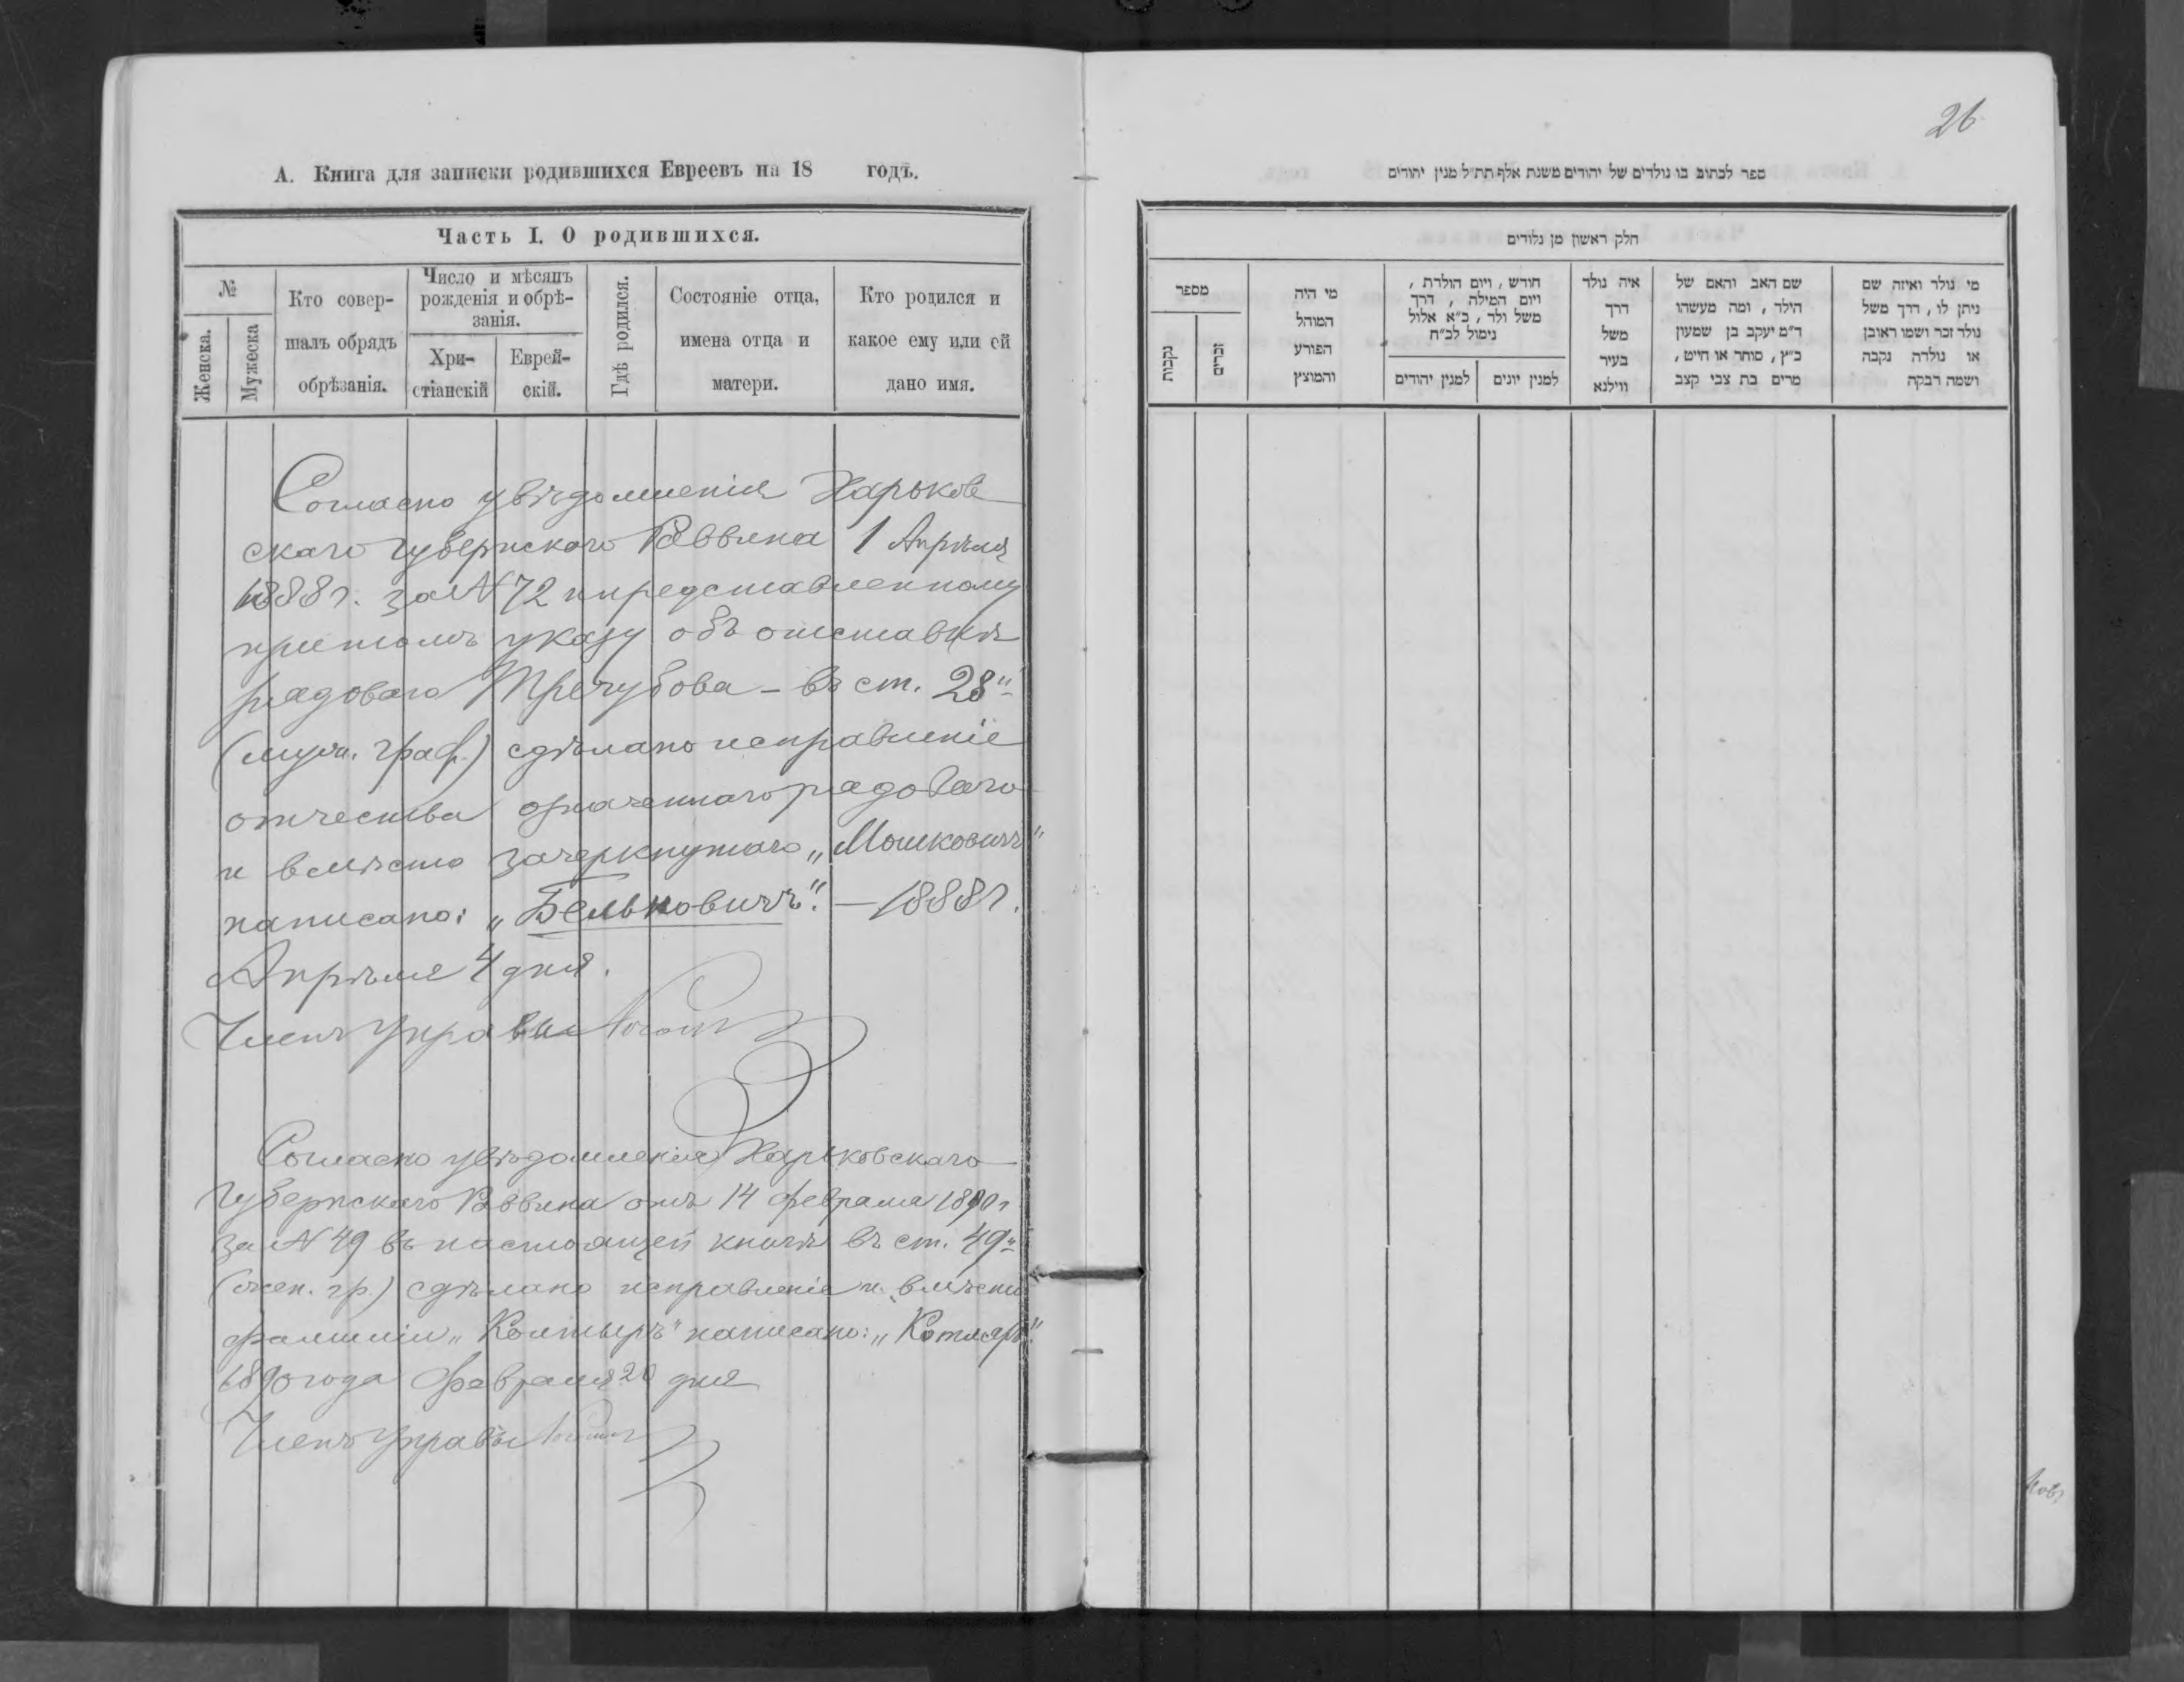 А. Книга для записки родившихся Евреевъ на 18 годъ.
Часть I. О родившихся.
№
Женска.
Мужеска
Кто совер-
шалъ обрядъ
обрѣзанія.
Число и мѣсяцъ
рожденія и обрѣ-
занія.
Хри-
стіанскій
Еврей-
скій.
Гдѣ родился.
Состояніе отца,
имена отца и
матери.
Кто родился и
какое ему или ей
дано имя.
Согласно увѣдомленія Харьков
скаго Губернскаго Раввина 1 Апрѣля
1888 г. за № 72 и представленному
при томъ указу объ отставкѣ
рядоваго Тречубова – въ ст. 28"
(муж. граф.) сдѣлано исправленіе
отчества означеннаго рядоваго
и вмѣсто зачеркнутаго „Мошковичъ"
написано: „Бельковичъ". – 1888 г.
Апрѣля 4 дня.
Членъ Управы
Согласно увѣдомленія Харьковскаго
Губернскаго Раввина отъ 14 февраля 1890 г
за № 49 въ настоящей книгѣ въ ст. 49"
(жен. гр.) сдѣлано исправленіе и вмѣсто
фамиліи „Колтыръ" написано: „Котляръ"
1890 года Февраля 20 дня
Членъ Управы
26
ספר לכתוב בו נולדים של יהודים משנת אלף תת״ל מנין יהודים
חלק ראשון מן נלודים
מספר
נקבות
זכרים
מי היה
המוהל
הפורע
והמוצץ
חודש, ויום הולדת,
ויום המילה, דרך
משל ולד, כ״א אלול
נימול לכ״ח
למנין יהודים
למנין יונים
איה נולד
דרך
משל
בעיר
ווילנא
שם האב והאם של
הילד, ומה מעשהו
ד״מ יעקב בן שמעון
כ״ץ, סוחר או חייט,
מרים בת צבי קצב
מי נולד ואיזה שם
ניתן לו, דרך משל
נולד זכר ושמו ראובן
או נולדה נקבה
ושמה רבקה